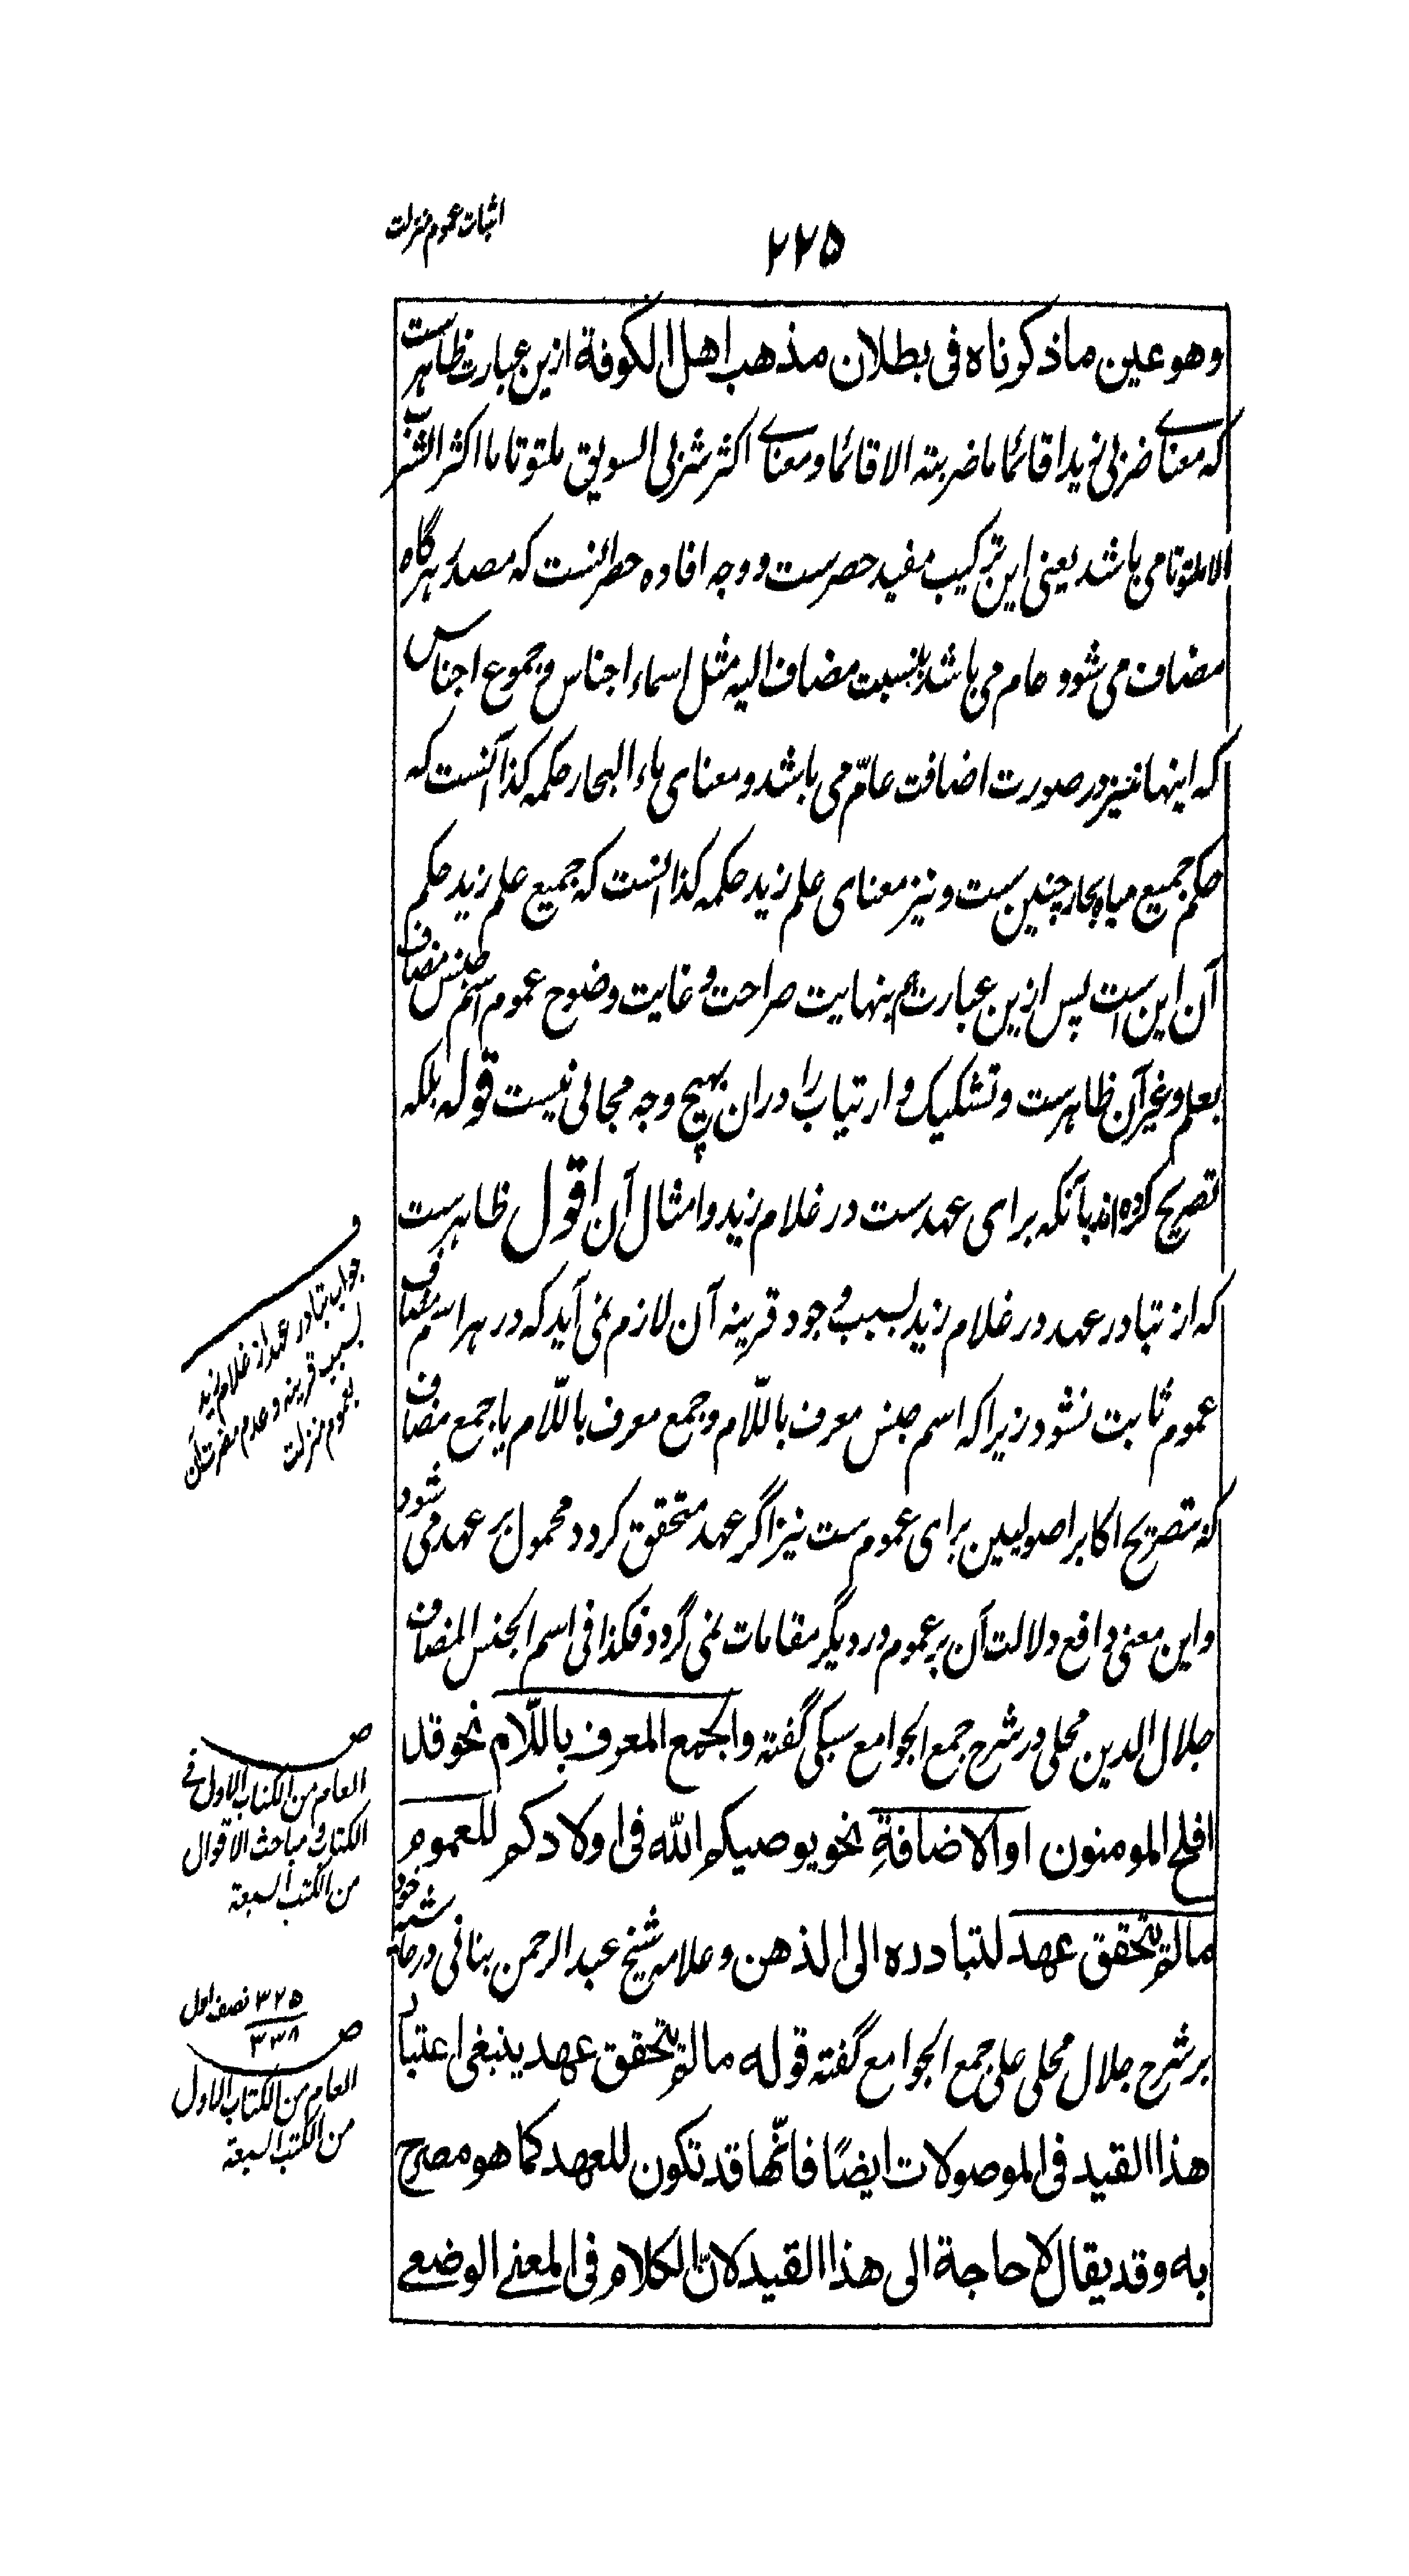 اثبات عموم منزلت
۲۲۵
وهو عین ما ذکرناه فی بطلان مذهب اهل الکوفة ازین عبارت ظاهرست
که معنای ضربی زیدا قائما ما ضربته الا قائما و معنای اکثر شربی السویق ملتوتا ما اکثر الشرب
الا ملتوتا می باشد یعنی این ترکیب مفید حصرست و وجه افاده حصر انست که مصدر هرگاه
مضاف می شود عام می باشد بنسبت مضاف الیه مثل اسماء اجناس و جموع اجناس
که اینها نیز در صورت اضافت عامّ می باشد و معنای ماء البحار حکمه کذا آنست که
حکم جمیع میاه بحار چنین ست و نیز معنای علم زید حکمه کذا انست که جمیع علم زید حکم
آن این است پس ازین عبارت هم بنهایت صراحت و غایت وضوح عموم اسم جنس مضاف
بعلم و غیر آن ظاهرست و تشکیک و ارتیاب را دران بهیچ وجه مجالی نیست قوله بلکه
تصریح کرده اند بآنکه برای عهدست در غلام زید و امثال آن اقول ظاهرست
که از تبادر عهد در غلام زید بسبب وجود قرینه آن لازم نمی آید که در هر اسم مضاف
عموم ثابت نشود زیرا که اسم جنس معرف باللّام و جمع معرف باللّام یا جمع مضاف
که بتصریح اکابر اصولیین برای عموم ست نیز اگر عهد متحقق گردد محمول بر عهد می شود
و این معنی دافع دلالت آن بر عموم در دیگر مقامات نمی گردد فکذا فی اسم الجنس المضاف
جلال الدین محلی در شرح جمع الجوامع سبکی گفته والجمع المعرف باللّام نحو قد
افلح المومنون او الاضافةِ نحو یوصیکم اللّه فی اولادکم للعموم
ما لم یتحقق عهد لتبادره الی الذهن و علامه شیخ عبد الرحمن بنانی در حاشیه خود
بر شرح جلال محلی علی جمع الجوامع گفته قوله ما لم یتحقق عهد ینبغی اعتبار
هذا القید فی الموصولات ایضًا فانّها قد تکون للعهد کما هو مصرح
به وقد یقال لا حاجة الی هذا القید لانّ الکلام فی المعنی الوضعی
ف
جواب تبادر عهد از غلام زید
بسبب قرینه و عدم مضرت آن
بعموم منزلت
ص
العام من الکتاب الاول فی
الکتاب و مباحث الاقوال
من الکتب السبعة
۳۲۵ نصف اول
ص ۳۳۸
العام من الکتاب الاول
من الکتب السبعة